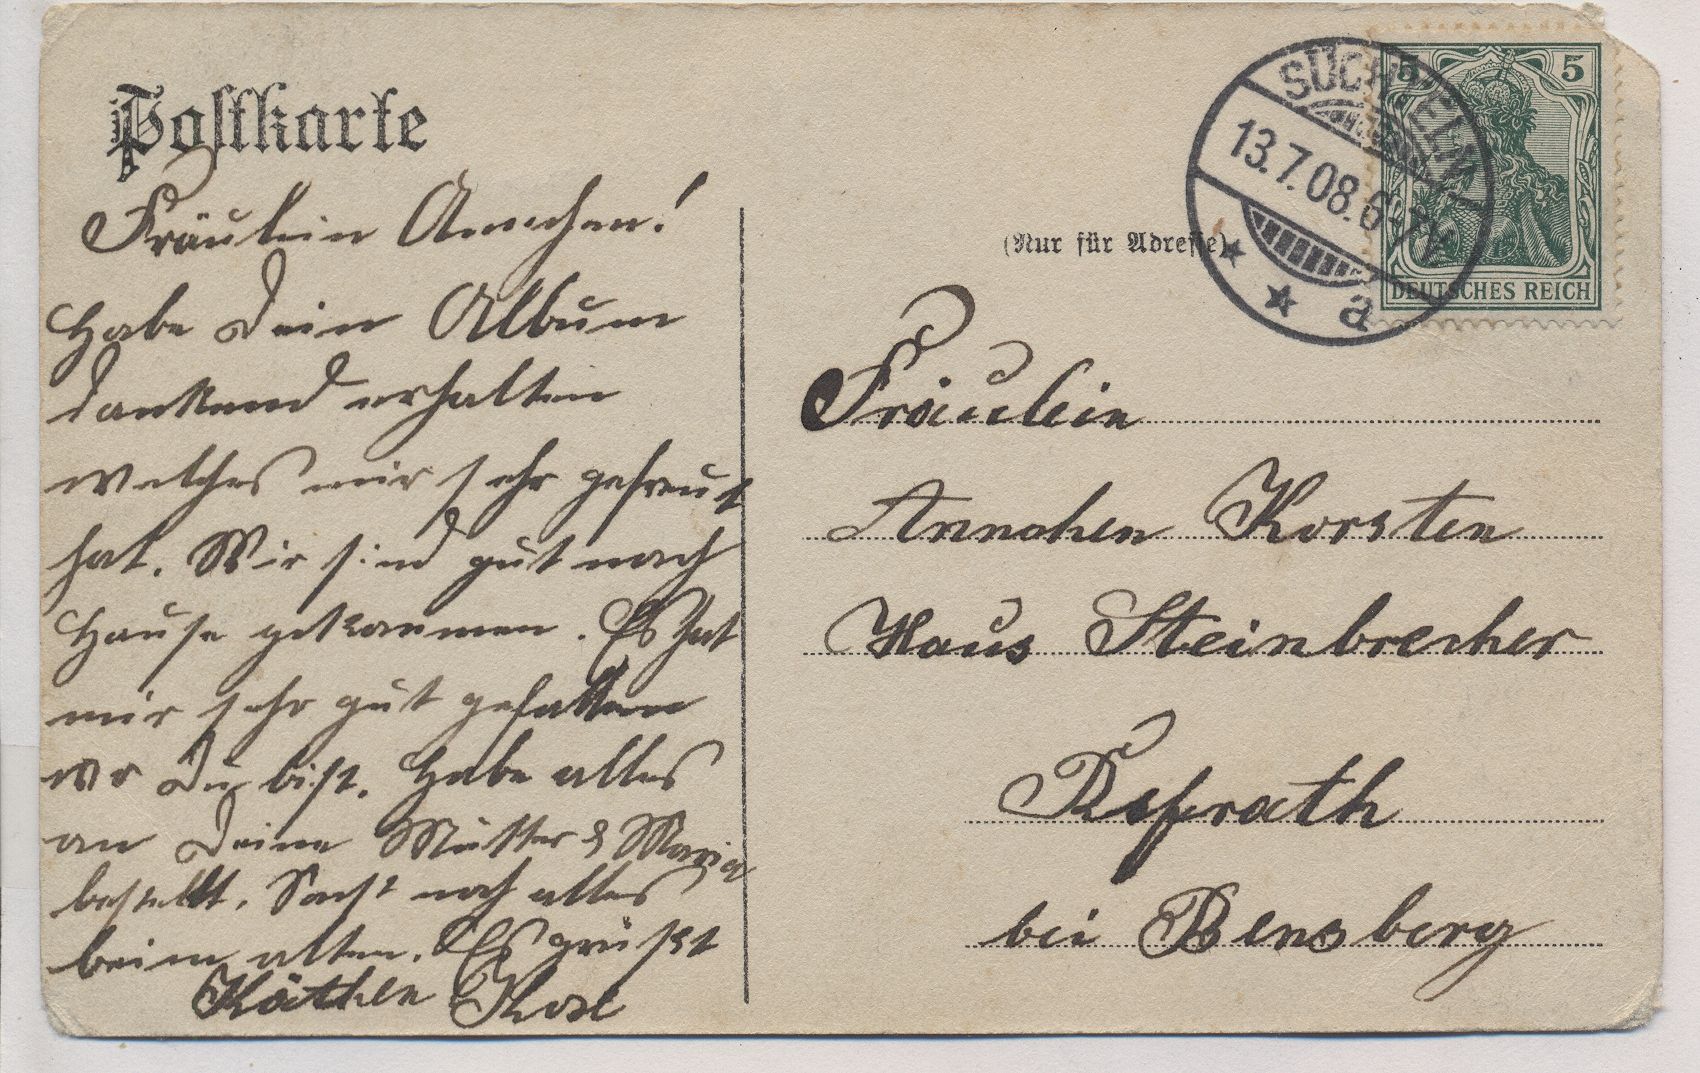 Postkarte
Fräulein Annchen!
Habe Dein Album
dankend erhalten
welches mir sehr gefreut
hat. Wir sind gut nach
Hause gekommen. Es hat
mir sehr gut gefallen
wo Du bist. Habe alles
an Deine Mutter & Maria
bestellt. Sonst noch alles
beim alten. Es grüßt
Käthen
(Nur für Adresse)
SÜCHTELN
13.7.08.6-7V
a
5 5
DEUTSCHES REICH
Fräulein
Annchen Korsten
Haus Steinbrecher
Refrath
bei Bensberg